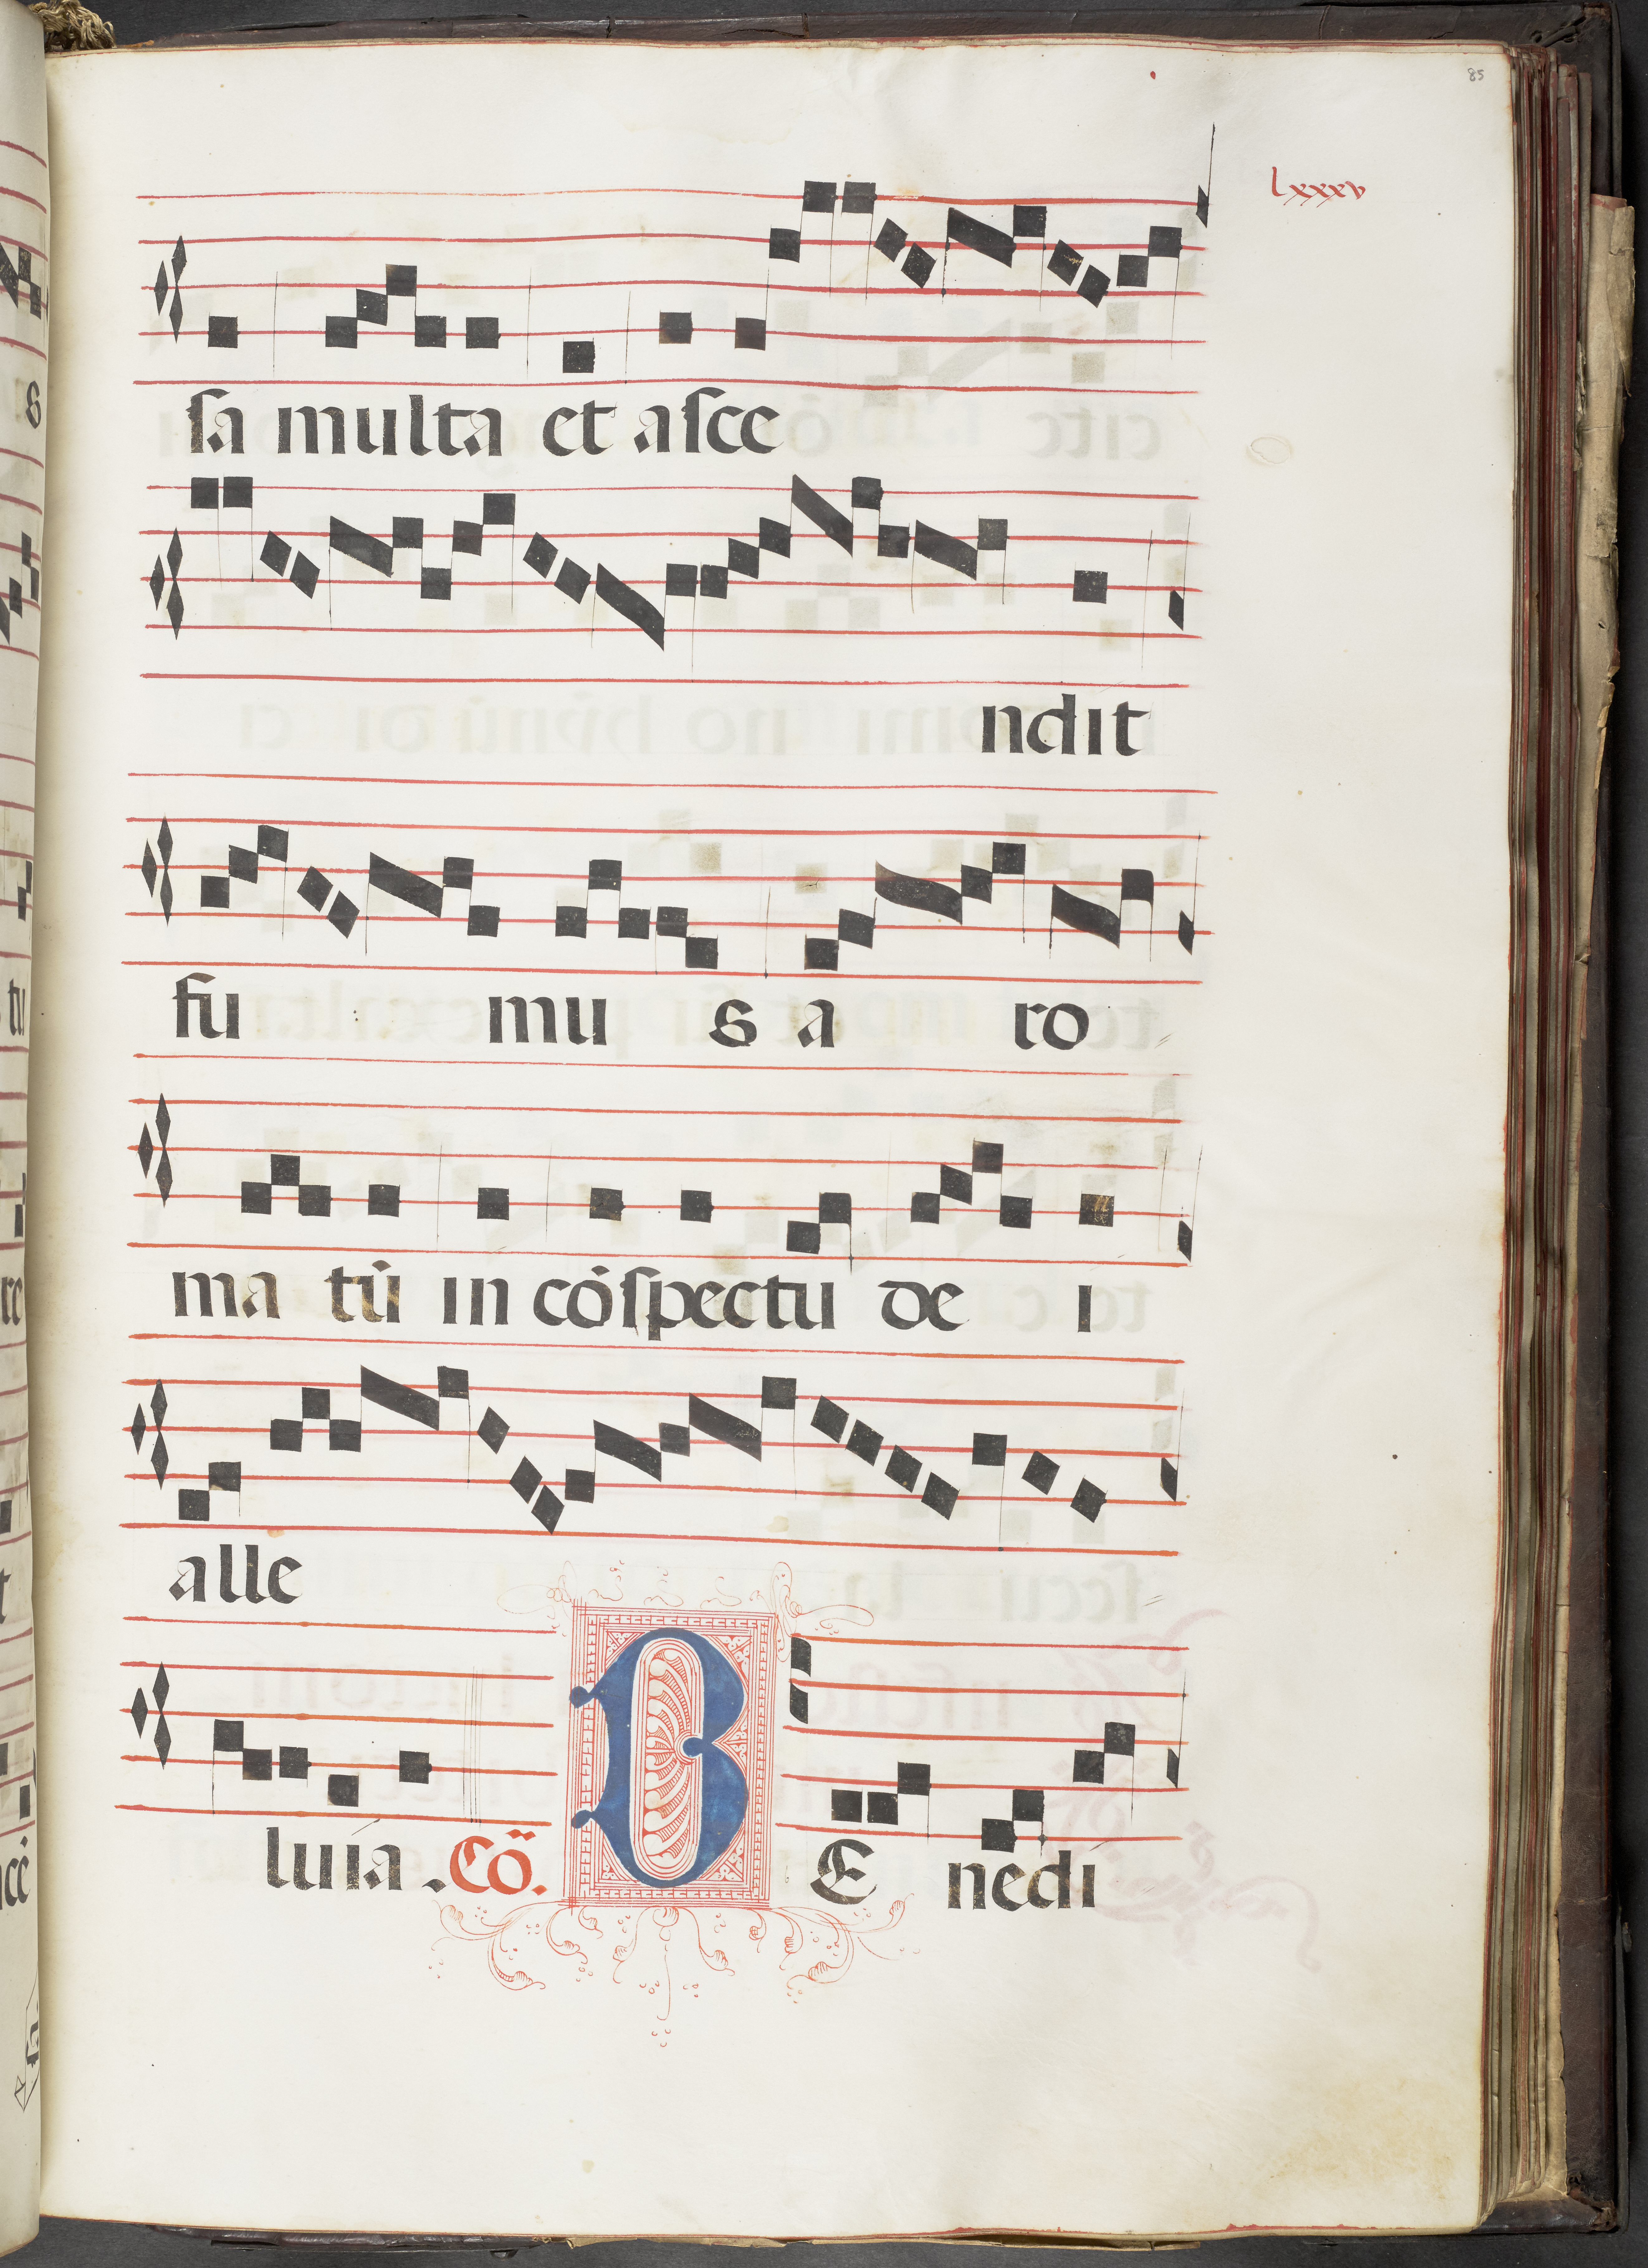 85
lxxxv
ſa multa et aſce
ndit
fu mu s a ro
ma tū in cōſpectu de i
alle
luia . Cō. B E nedi